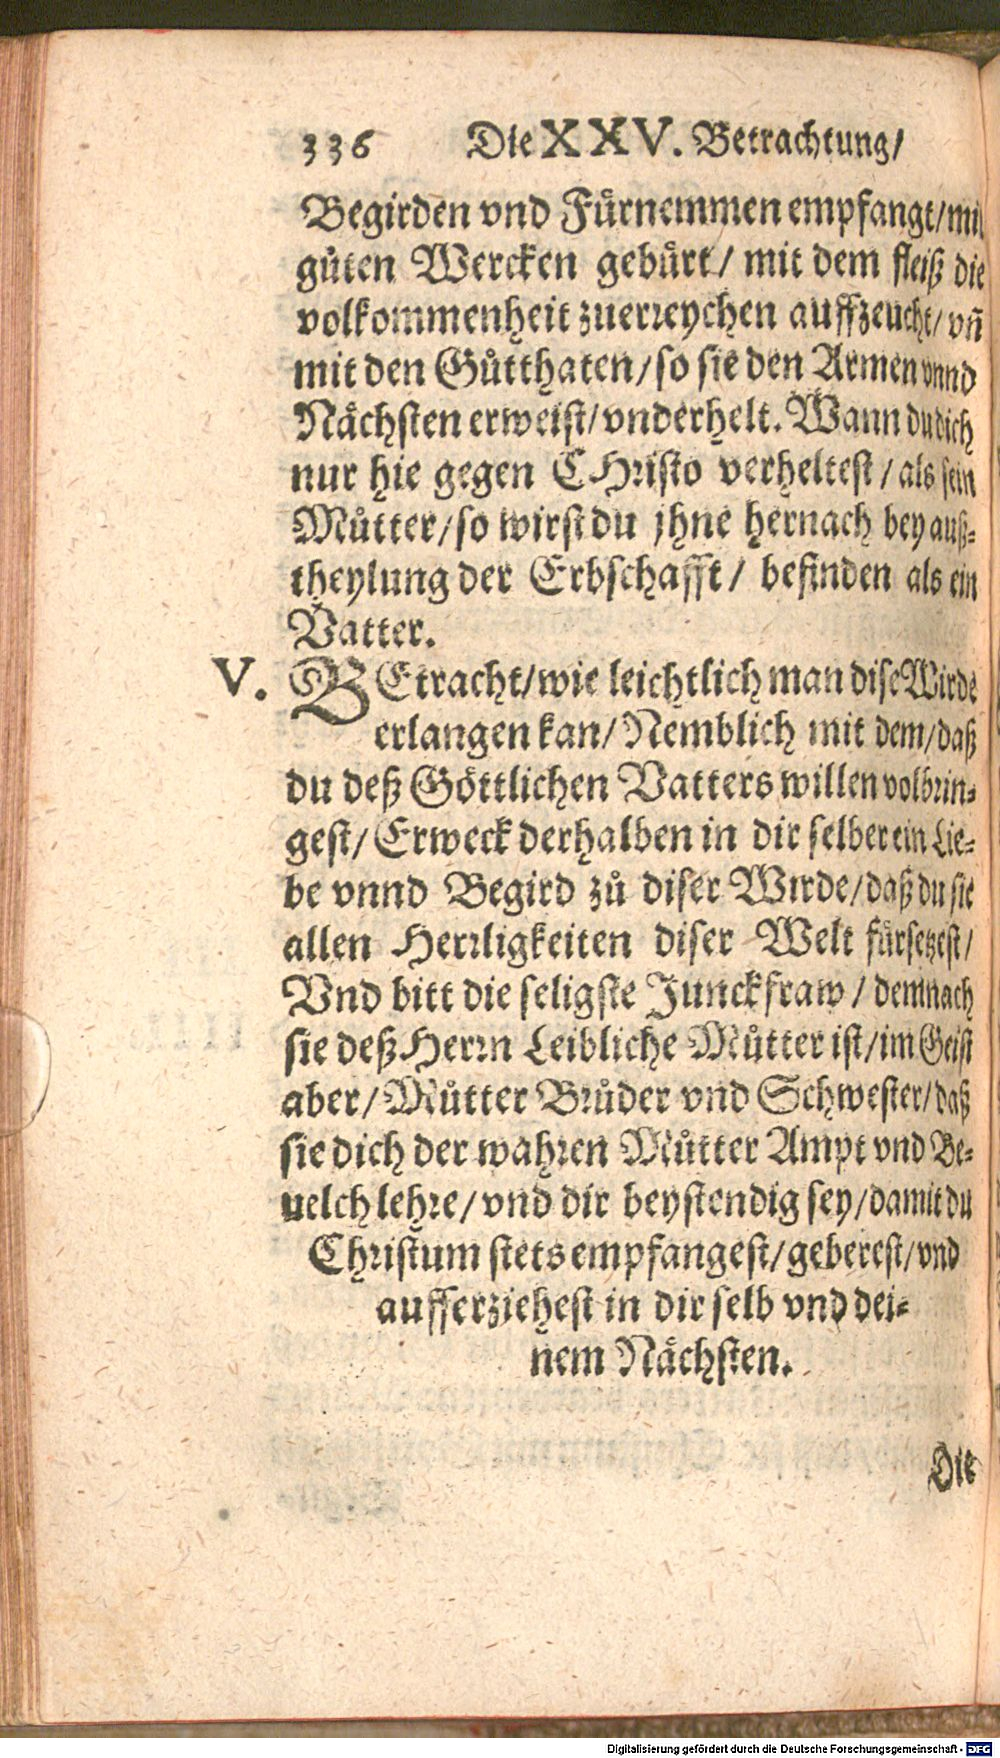 336 Die XXV. Betrachtung/
Begirden vnd Fürnemmen empfangt/mit
gůten Wercken gebürt/ mit dem fleiß die
volkommenheit zuerreychen auffzeucht/vñ
mit den Gůtthaten/so sie den Armen vnnd
Nächsten erweist/vnderhelt. Wann du dich
nur hie gegen CHristo verheltest/als sein
Můtter/so wirst du jhne hernach bey auß-
theylung der Erbschafft/ befinden als ein
Vatter.
V. BEtracht/wie leichtlich man dise Wirde
erlangen kan/Nemblich mit dem/daß
du deß Göttlichen Vatters willen volbrin-
gest/Erweck derhalben in dir selber ein Lie-
be vnnd Begird zů diser Wirde/daß du sie
allen Herrligkeiten diser Welt fürsetzest/
Vnd bitt die seligste Junckfraw/demnach
sie deß Herrn Leibliche Můtter ist/im Geist
aber/Můtter Brůder vnd Schwester/daß
sie dich der wahren Můtter Ampt vnd Be-
uelch lehre/vnd dir beystendig sey/damit du
Christum stets empfangest/geberest/vnd
aufferziehest in dir selb vnd dei-
nem Nächsten.
Die
Digitalisierung gefördert durch die Deutsche Forschungsgemeinschaft - DFG